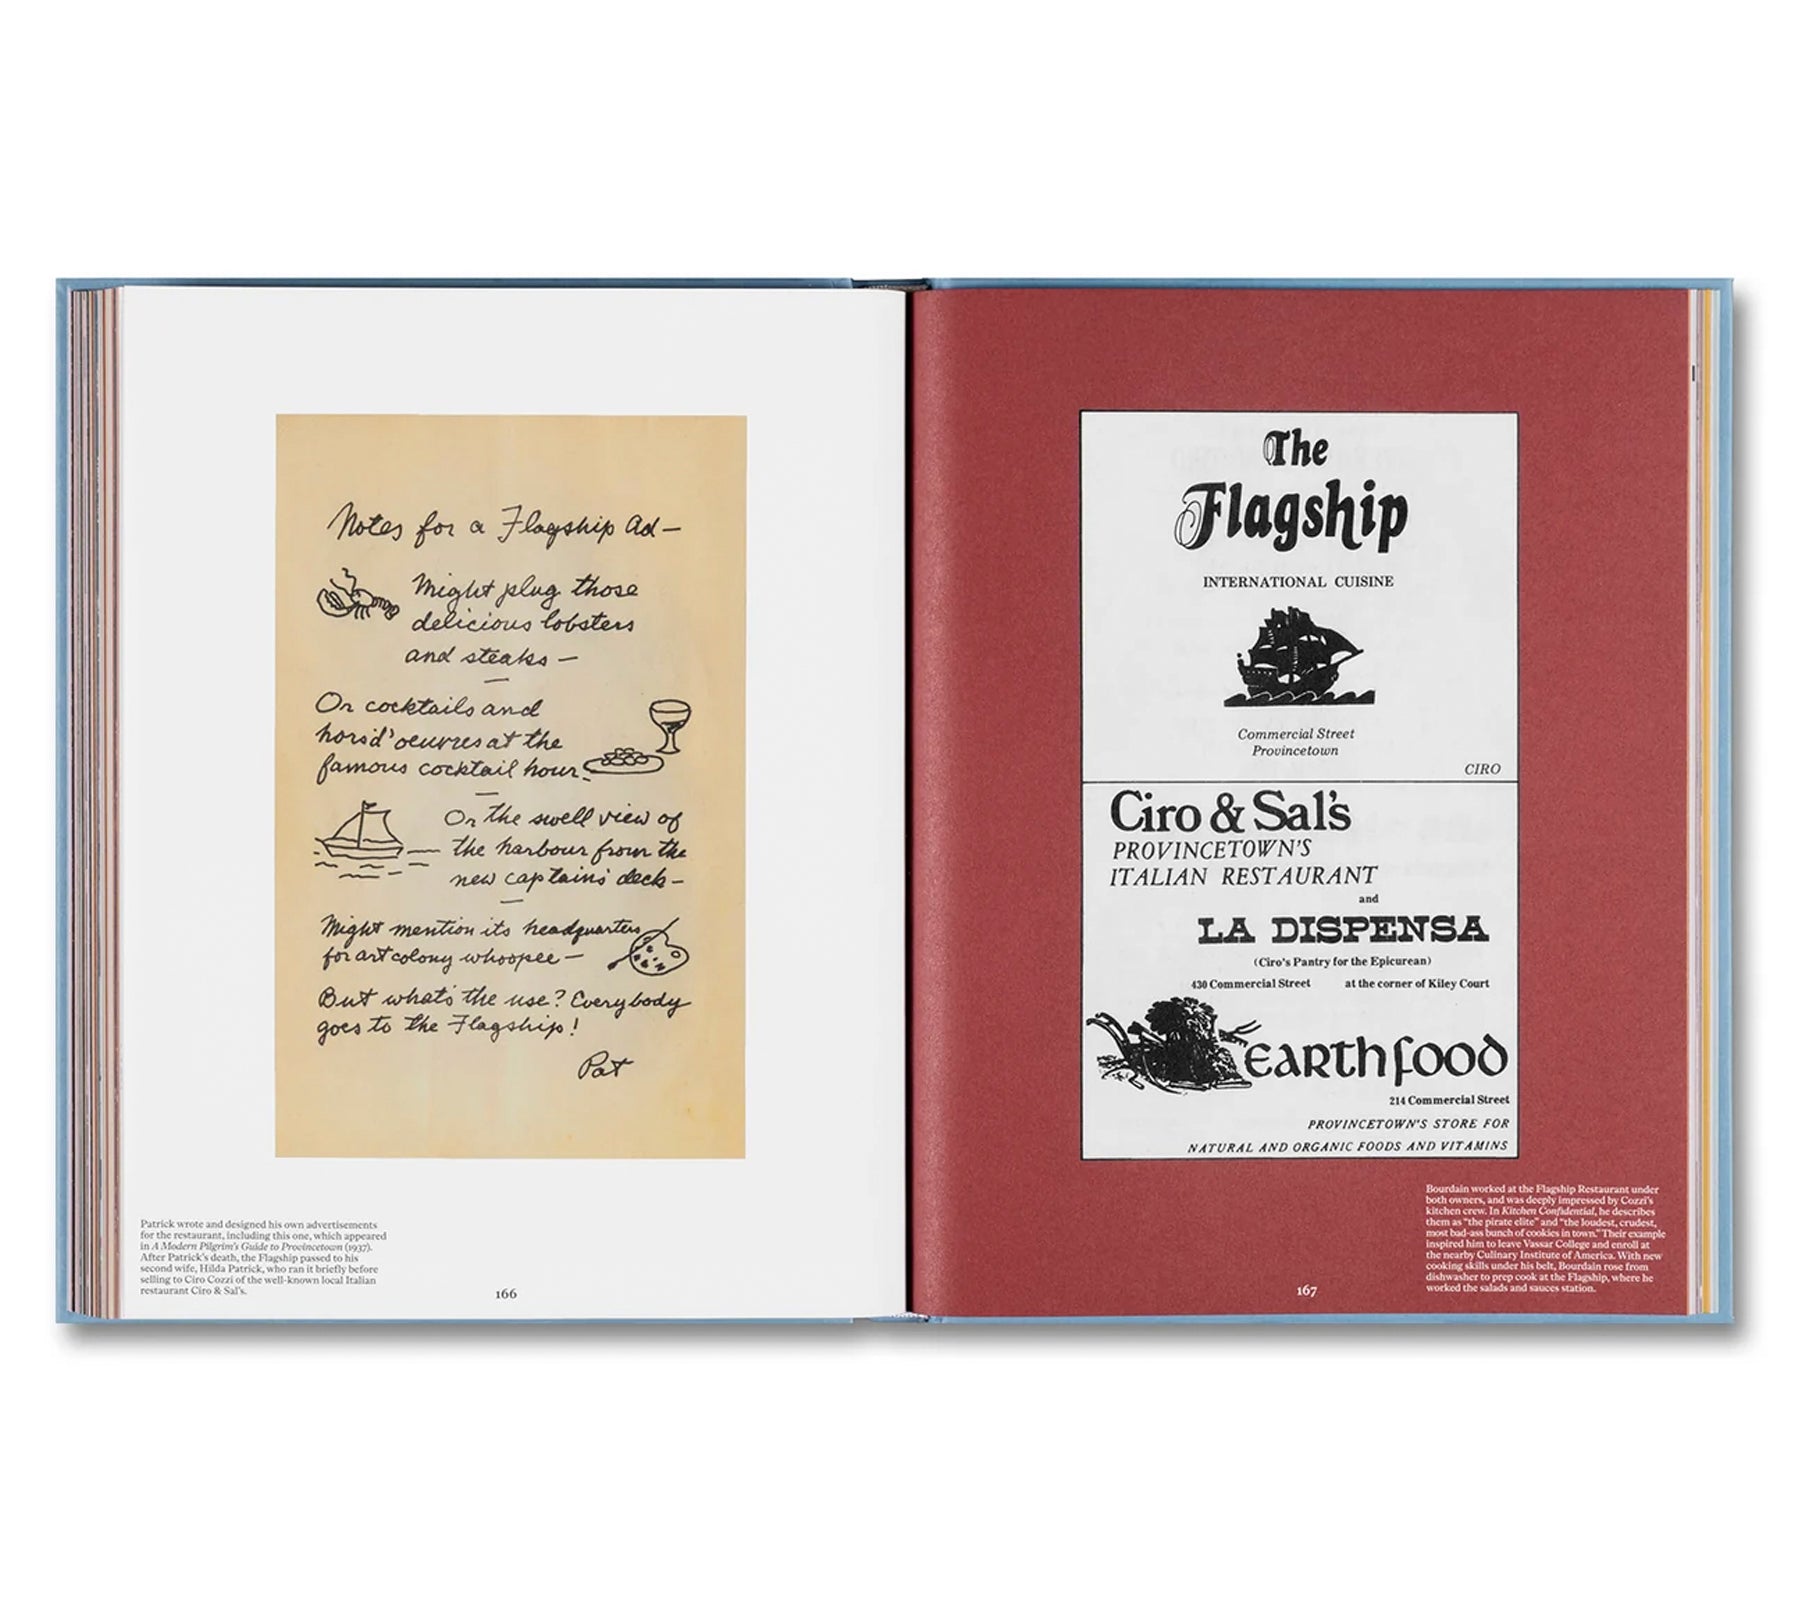 Notes for a Flagship Ad—
Might plug those
delicious lobsters
and steaks —
Or cocktails and
hors d'oeuvres at the
famous cocktail hour.
Or the swell view of
the harbour from the
new captains' deck —
Might mention its headquarters
for art colony whoopee —
But what's the use? Everybody
goes to the Flagship!
Pat
Patrick wrote and designed his own advertisements
for the restaurant, including this one, which appeared
in A Modern Pilgrim's Guide to Provincetown (1937).
After Patrick's death, the Flagship passed to his
second wife, Hilda Patrick, who ran it briefly before
selling to Ciro Cozzi of the well-known local Italian
restaurant Ciro & Sal's.
166
The
Flagship
INTERNATIONAL CUISINE
Commercial Street
Provincetown
CIRO
Ciro & Sal's
PROVINCETOWN'S
ITALIAN RESTAURANT
and
LA DISPENSA
(Ciro's Pantry for the Epicurean)
430 Commercial Street at the corner of Kiley Court
EARTHFOOD
214 Commercial Street
PROVINCETOWN'S STORE FOR
NATURAL AND ORGANIC FOODS AND VITAMINS
Bourdain worked at the Flagship Restaurant under
both owners, and was deeply impressed by Cozzi's
kitchen crew. In Kitchen Confidential, he describes
them as "the pirate elite" and "the loudest, crudest,
most bad-ass bunch of cookies in town." Their example
inspired him to leave Vassar College and enroll at
the nearby Culinary Institute of America. With new
cooking skills under his belt, Bourdain rose from
dishwasher to prep cook at the Flagship, where he
worked the salads and sauces station.
167